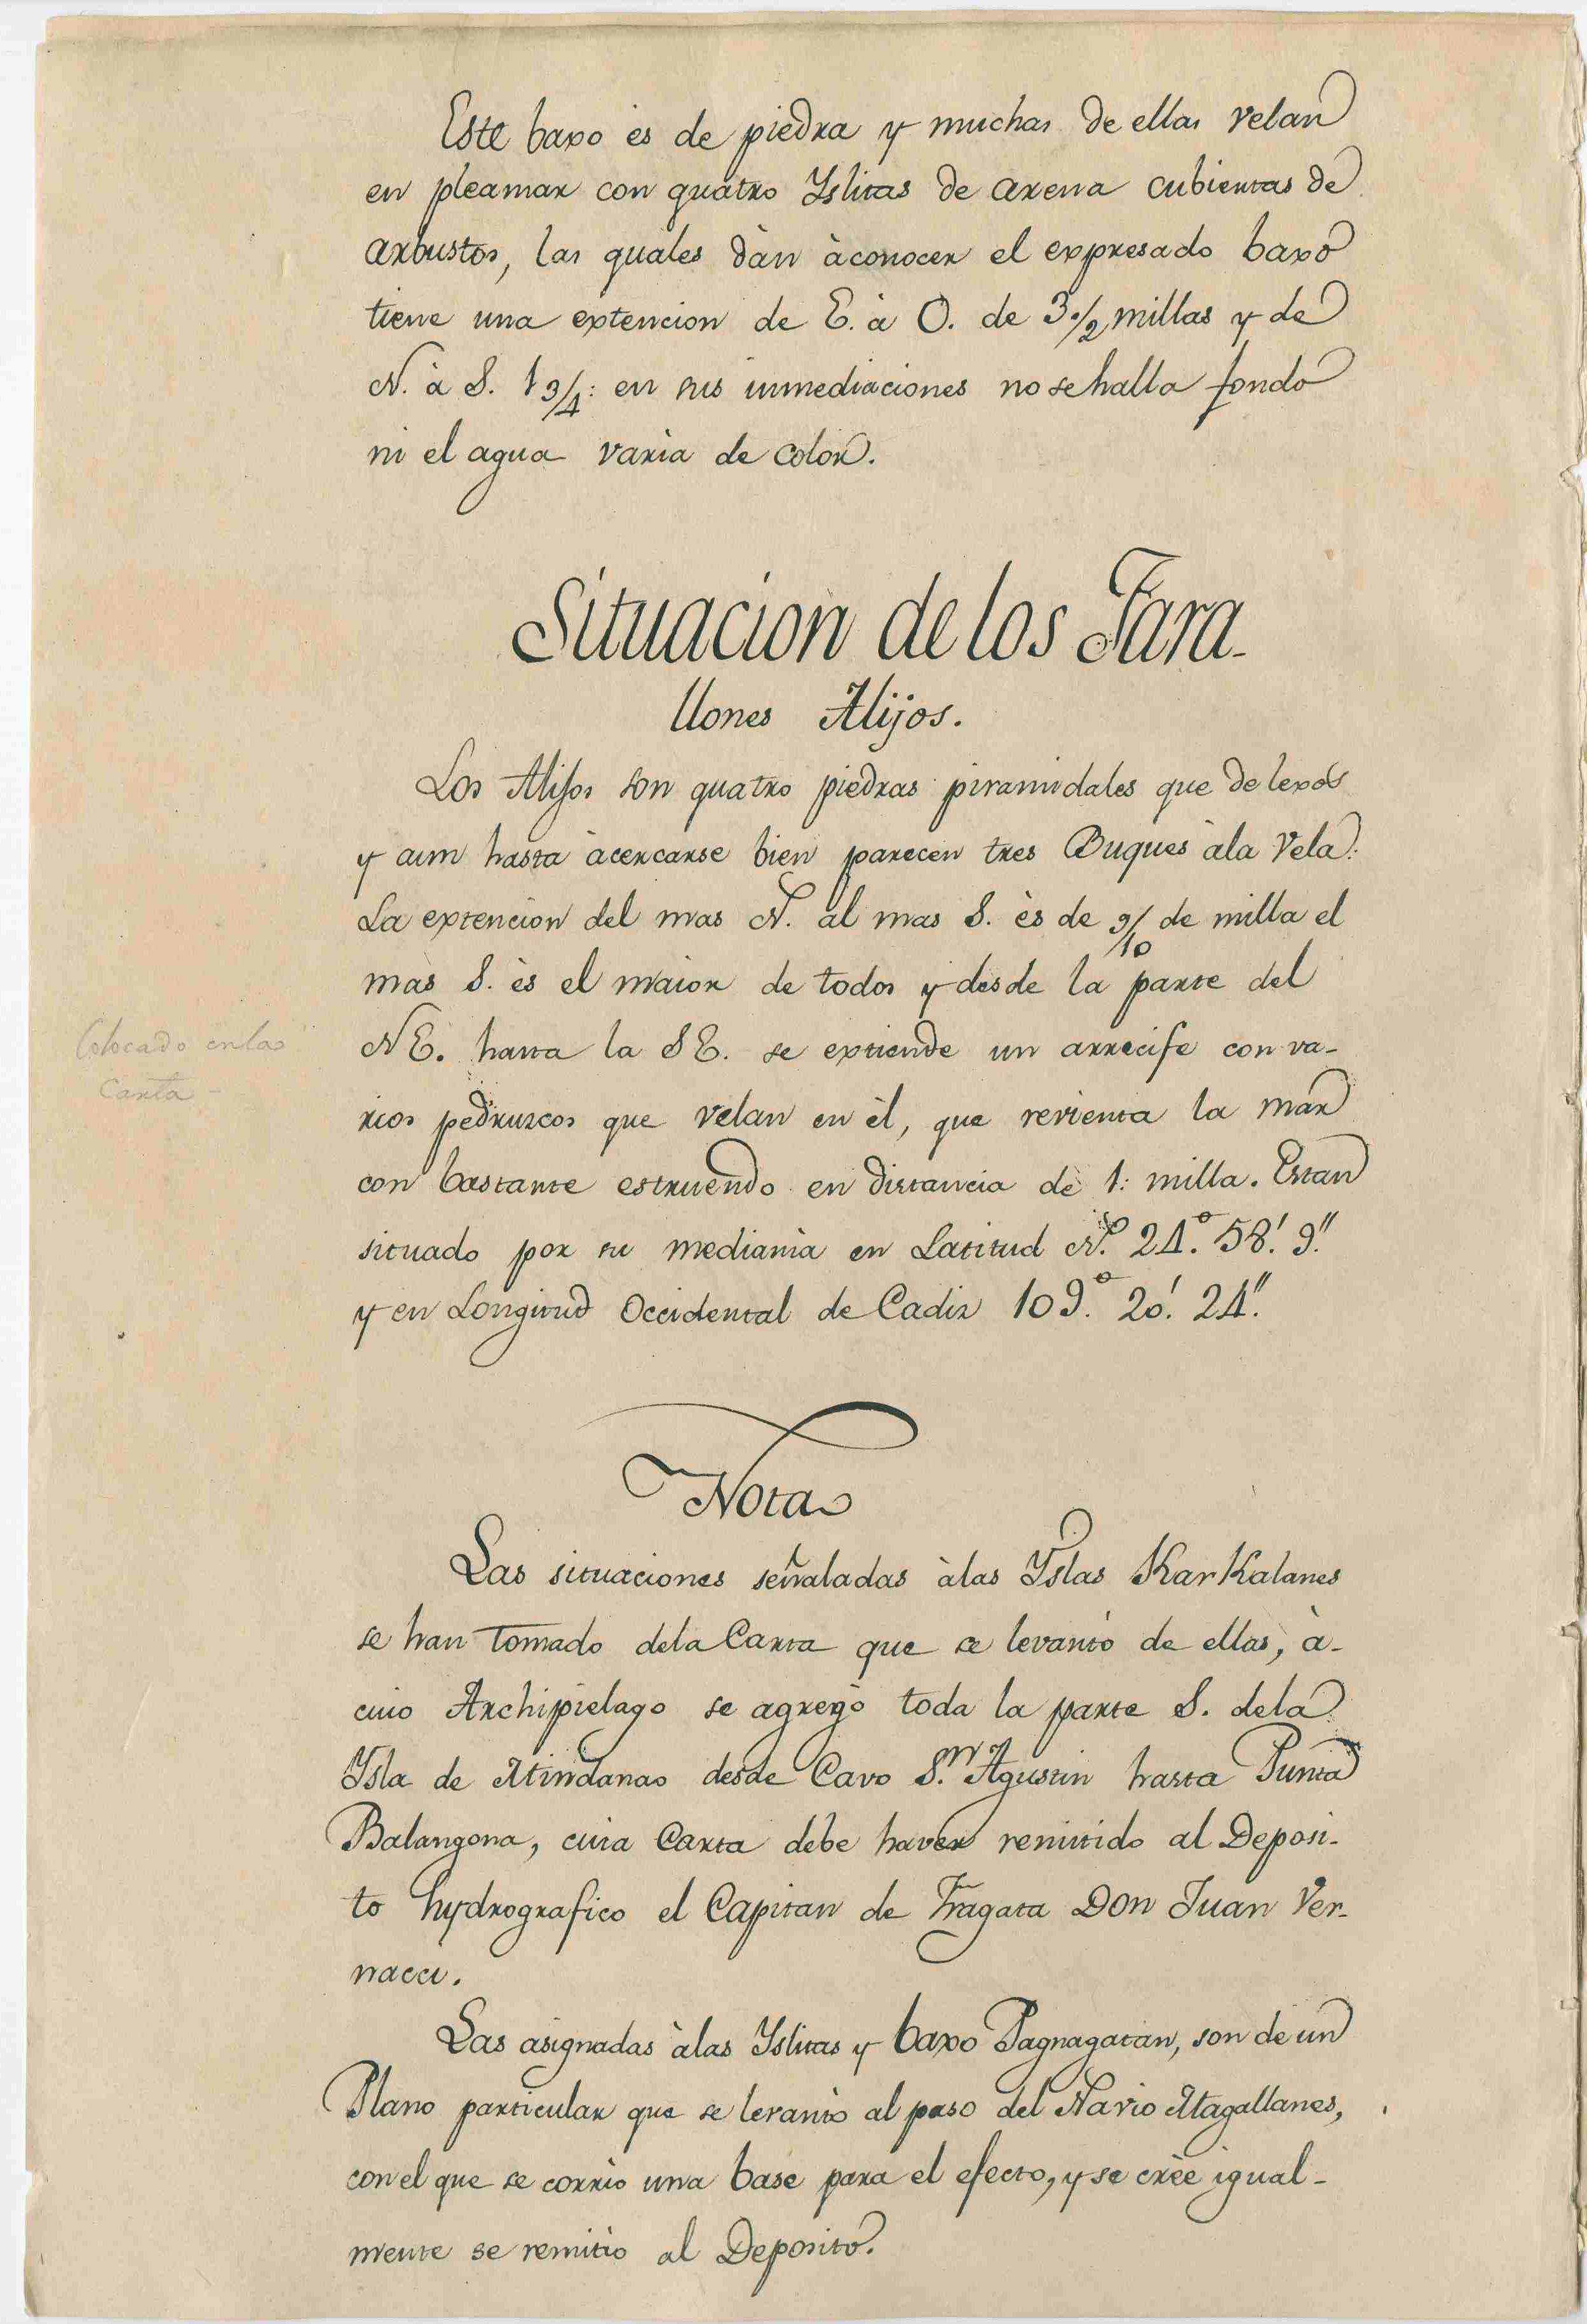 Este baxo ès de piedra y muchas de ellas velan
en pleamar con quatro Yslitas de arena cubiertas de
arbustos, las quales dàn àconocer el expresado baxo
tiene una extencion de E. à O. de 3 1/2 millas y de
N. à S. 1 3/4: en sus inmediaciones no se halla fondo
ni el agua varìa de color.
Situacion de los Fara-
llones Alijos.
Los Alijos son quatro piedras piramidales que de lexos
y aun hasta àcercarse bien parecen tres Buques àla Vela.
La extencion del mas N. al mas S. ès de 9/10 de milla el
mas S. ès el maior de todos y desde la parte del
NE. hasta la SE. se extiende un arrecife con va-
rios pedruscos que velan en èl, que revienta la mar
con bastante estruendo en distancia de 1: milla. Estan
situado por su mediania en Latitud N. 24.° 58.' 9."
y en Longitud Occidental de Cadiz 109.° 20.' 24."
Colocado en la
Carta -
Nota
Las situaciones señaladas àlas Yslas KarKalanes
se han tomado dela Carta que se levantò de ellas, à-
cuio Archipielago se agregò toda la parte S. dela
Ysla de Mindanao desde Cavo S.n Agustin hasta Punta
Balangona, cuia Carta debe haver remitido al Deposi-
to hydrografico el Capitan de Fragata Don Juan Ver-
nacci.
Las asignadas àlas Yslitas y baxo Pagnagatan, son de un
Plano particular que se levantò al paso del Navio Magallanes,
con el que se corriò una base para el efecto, y se crèe igual-
mente se remitiò al Deposito.